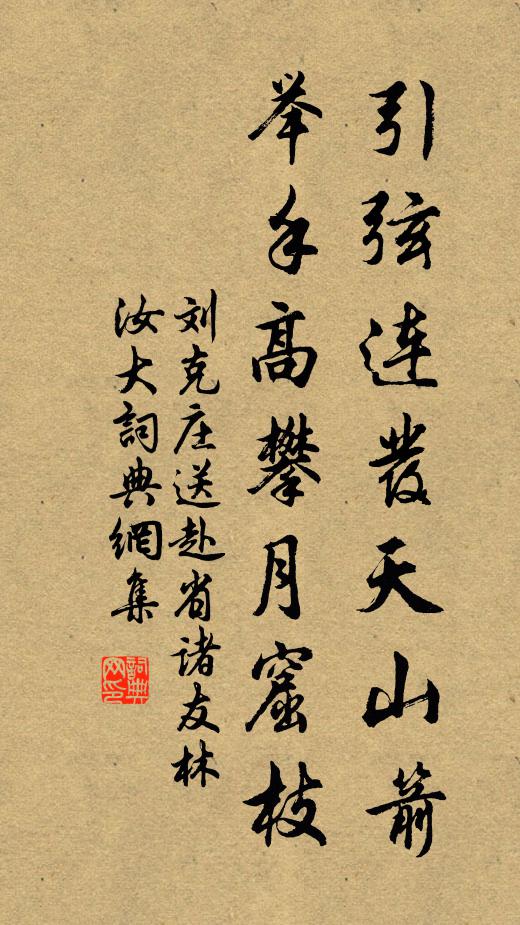 引弦连发天山箭
举手高攀月窟枝
刘克庄送赴省诸友林
汝大詞典網集
詞典网印